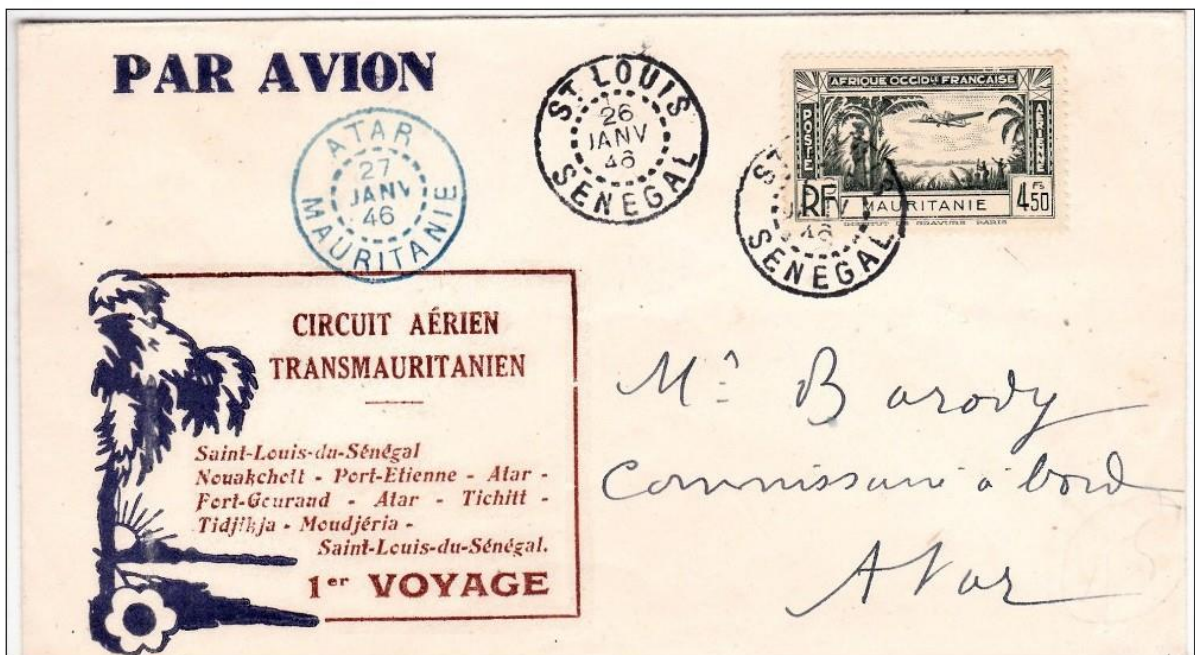 PAR AVION
ATAR
27
JANV
46
MAURITANIE
ST LOUIS
26
JANV
46
SENEGAL
AFRIQUE OCCIDLE FRANÇAISE
POSTE
AERIENNE
RF
MAURITANIE
4F50
INSTITUT DE GRAVURE PARIS
ST
JANV
46
SENEGAL
CIRCUIT AÉRIEN
TRANSMAURITANIEN
Saint-Louis-du-Sénégal
Nouakchott - Port-Etienne - Atar -
Fort-Gouraud - Atar - Tichitt -
Tidjikja - Moudjéria -
Saint-Louis-du-Sénégal.
1er VOYAGE
Mr Barody
Commissaire à bord
Atar